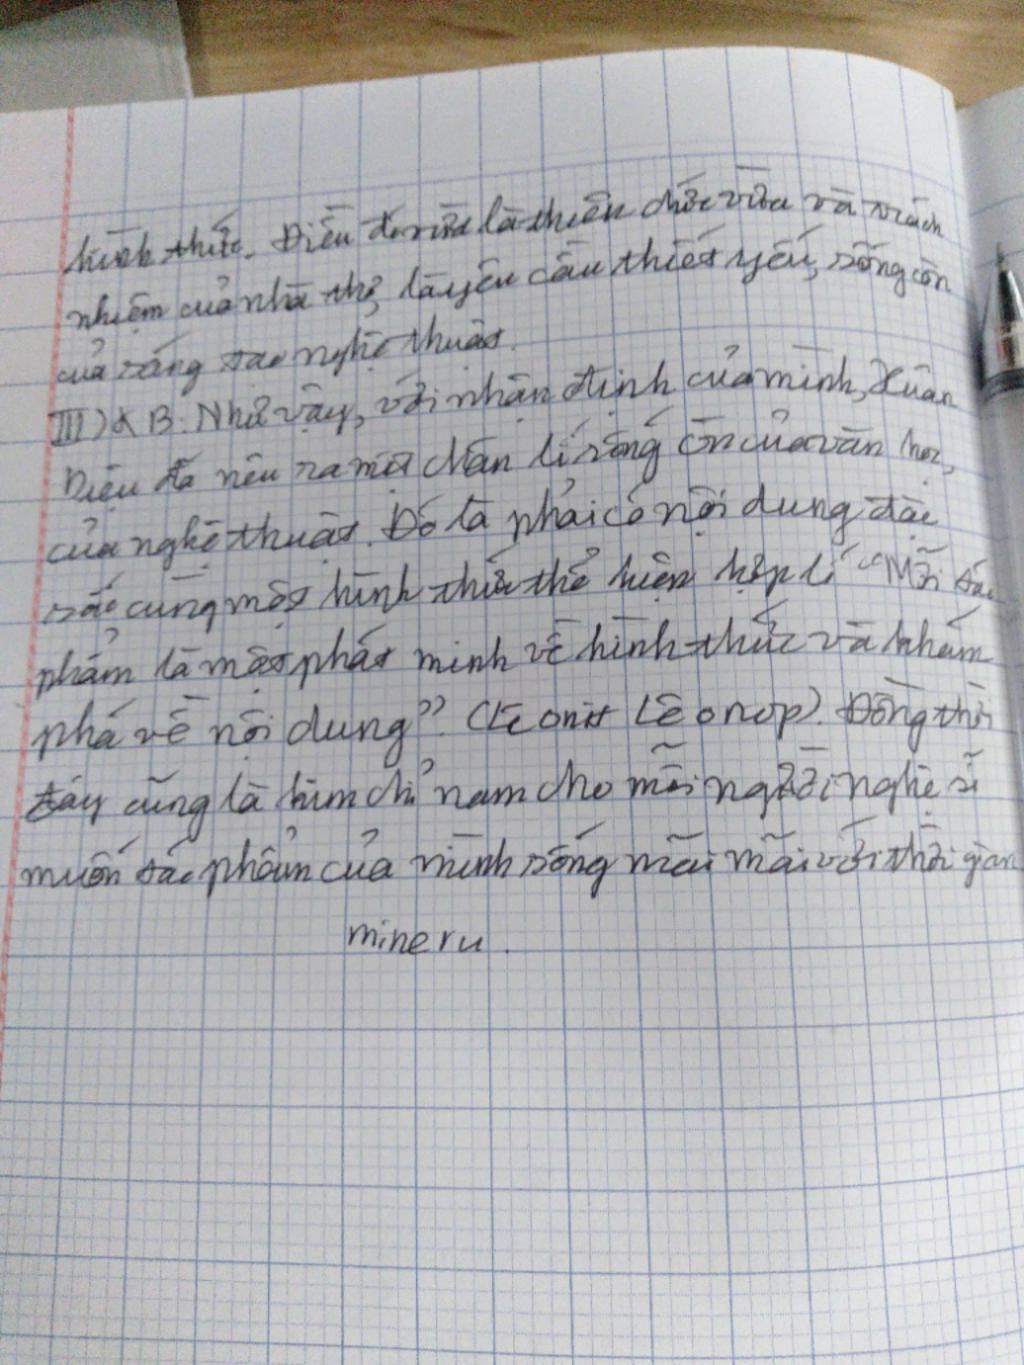 hình thức. Điều đó vừa là thiên chức vừa và trách
nhiệm của nhà thơ, là yêu cầu thiết yếu, sống còn
của sáng tạo nghệ thuật.
III) KB: Như vậy, với nhận định của mình, Xuân
Diệu đã nêu ra một chân lí sống còn của văn học,
của nghệ thuật. Đó là phải có nội dung đặc
sắc cùng một hình thức thể hiện hợp lí "Mỗi tác
phẩm là một phát minh về hình thức và khám
phá về nội dung". (Lêonit Lêonop). Đồng thời
đây cũng là kim chỉ nam cho mỗi người nghệ sĩ
muốn tác phẩm của mình sống mãi mãi với thời gian
mineru.